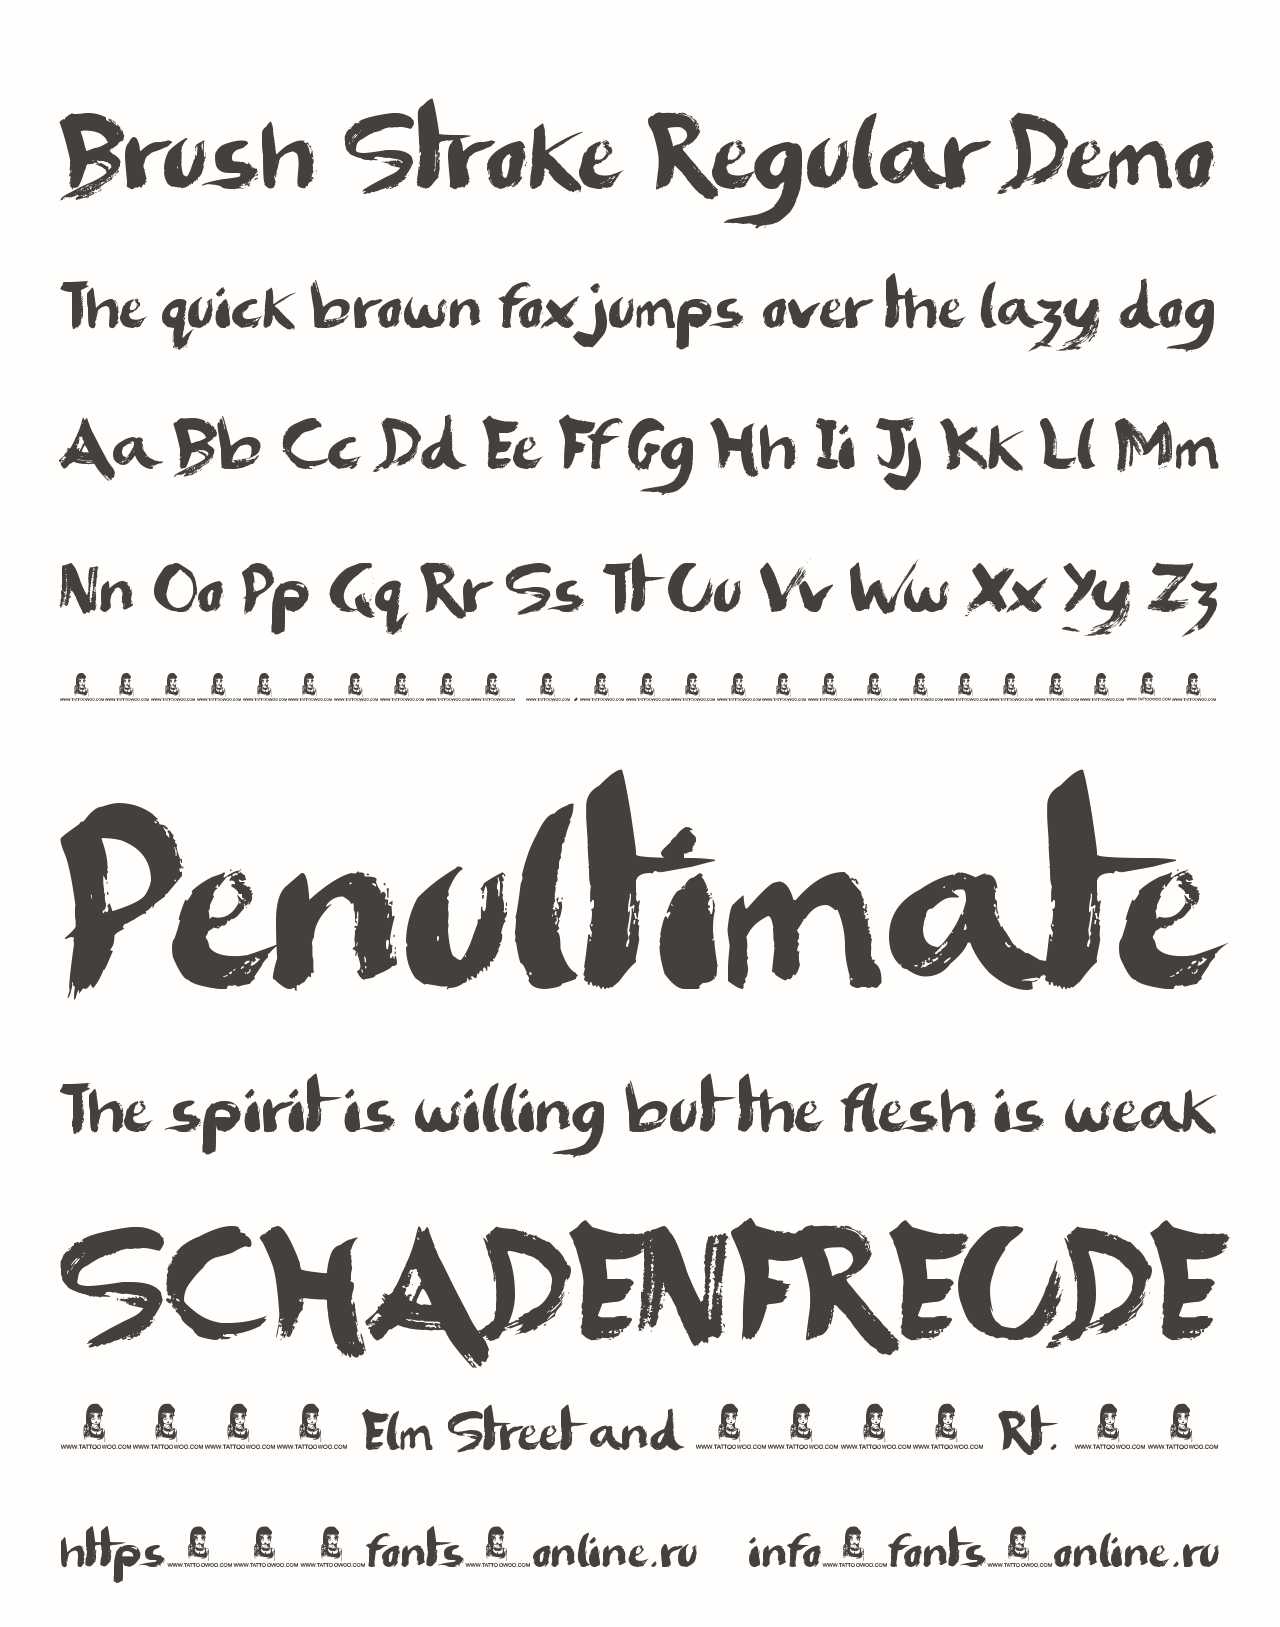 Brush Stroke Regular Demo
The quick brown fox jumps over the lazy dog
Aa Bb Cc Dd Ee Ff Gg Hh Ii Jj Kk Ll Mm
Nn Oo Pp Qq Rr Ss Tt Uu Vv Ww Xx Yy Zz
WWW.TATTOOWOO.COM WWW.TATTOOWOO.COM WWW.TATTOOWOO.COM WWW.TATTOOWOO.COM WWW.TATTOOWOO.COM WWW.TATTOOWOO.COM WWW.TATTOOWOO.COM WWW.TATTOOWOO.COM WWW.TATTOOWOO.COM WWW.TATTOOWOO.COM WWW.TATTOOWOO.COM , WWW.TATTOOWOO.COM WWW.TATTOOWOO.COM WWW.TATTOOWOO.COM WWW.TATTOOWOO.COM WWW.TATTOOWOO.COM WWW.TATTOOWOO.COM WWW.TATTOOWOO.COM WWW.TATTOOWOO.COM WWW.TATTOOWOO.COM WWW.TATTOOWOO.COM WWW.TATTOOWOO.COM WWW.TATTOOWOO.COM WWW.TATTOOWOO.COM WWW.TATTOOWOO.COM
Penultimate
The spirit is willing but the flesh is weak
SCHADENFREUDE
WWW.TATTOOWOO.COM WWW.TATTOOWOO.COM WWW.TATTOOWOO.COM WWW.TATTOOWOO.COM Elm Street and WWW.TATTOOWOO.COM WWW.TATTOOWOO.COM WWW.TATTOOWOO.COM WWW.TATTOOWOO.COM Rt. WWW.TATTOOWOO.COM WWW.TATTOOWOO.COM
https WWW.TATTOOWOO.COM WWW.TATTOOWOO.COM WWW.TATTOOWOO.COM fonts WWW.TATTOOWOO.COM online.ru info WWW.TATTOOWOO.COM fonts WWW.TATTOOWOO.COM online.ru